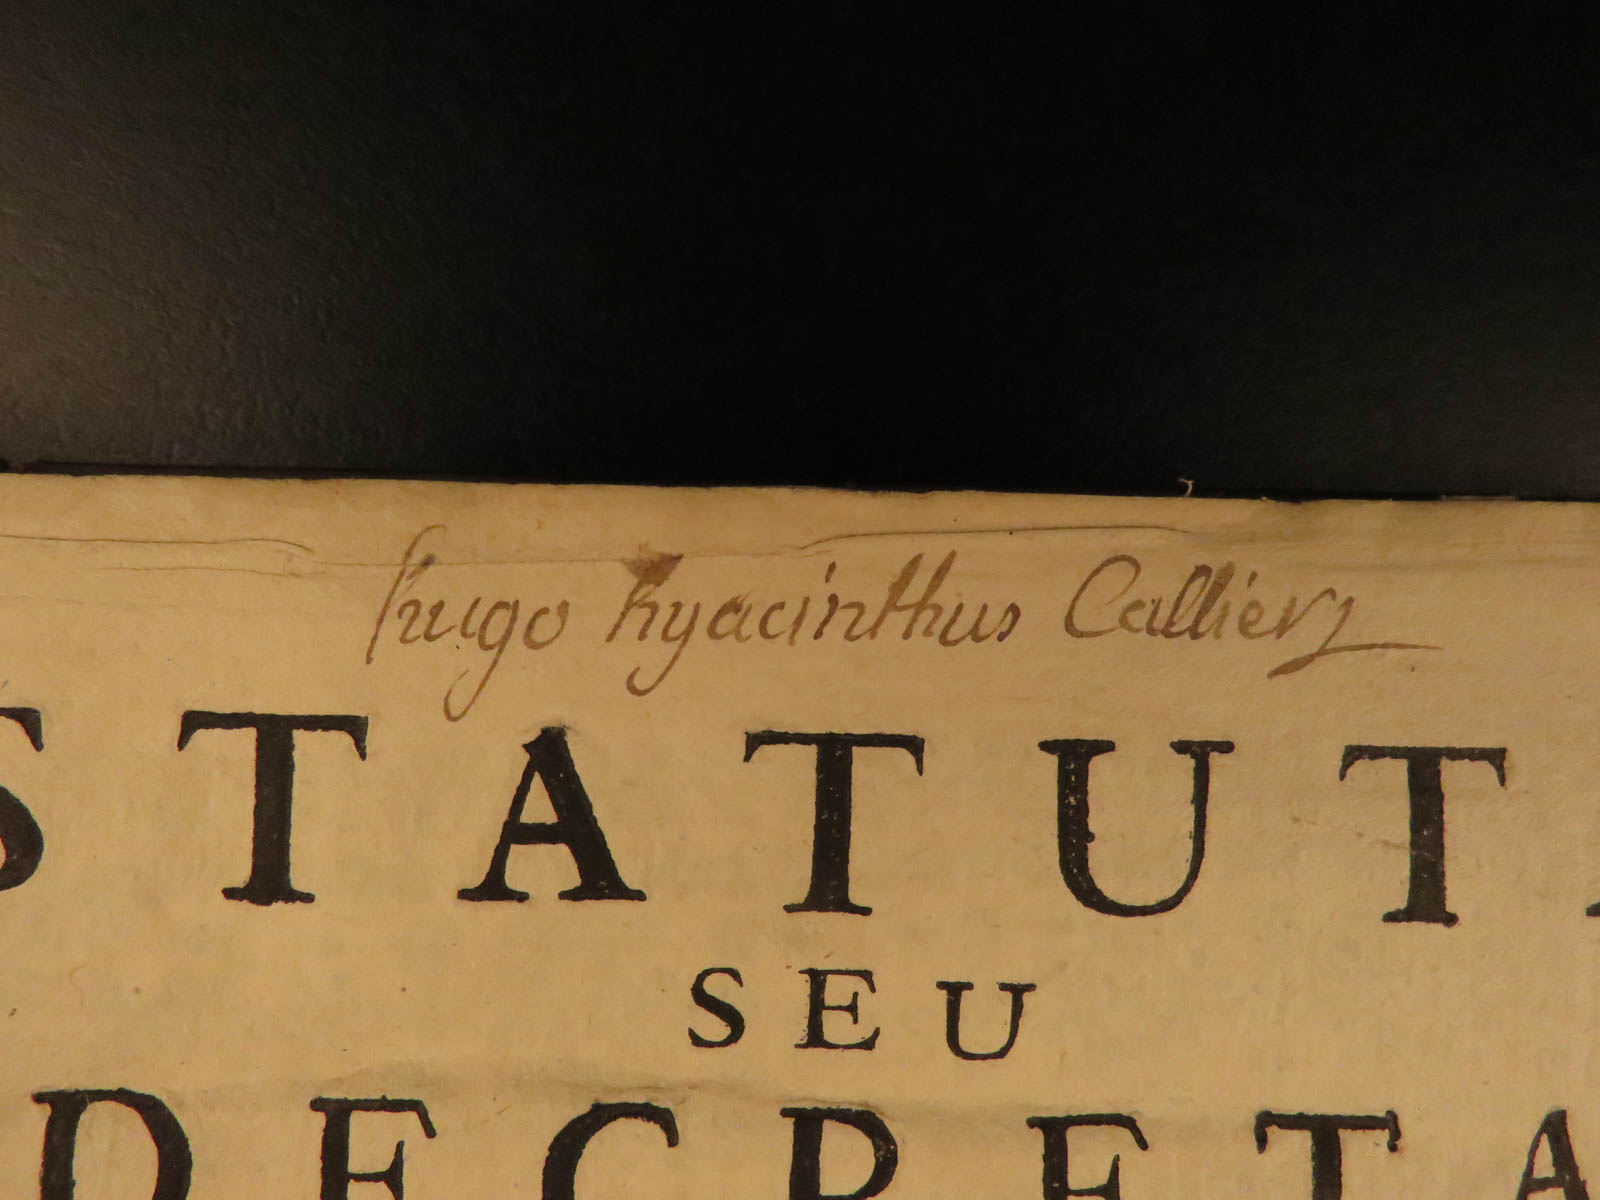 hugo hyacinthus Callierz
STATUTA
SEU
DECRETA